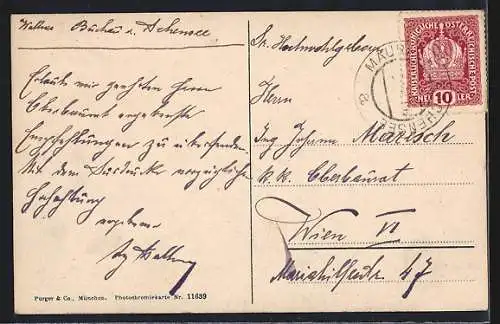 Buchau a. Achensee
Erlaube mir geehrten Herrn
Oberbaurat ergebenste
Empfehlungen zu übersenden.
Mit dem Ausdrucke vorzüglicher
Hochachtung
ergebener
Sr. Hochwohlgeboren
Herrn
Ing. Johann Marisch
k.k. Oberbaurat
Wien VI
Mariahilferstr. 47
KAISERLICHE KÖNIGLICHE ÖSTERREICHISCHE POST
HELLER 10
MAURACH
Purger & Co., München. Photochromiekarte Nr. 11639